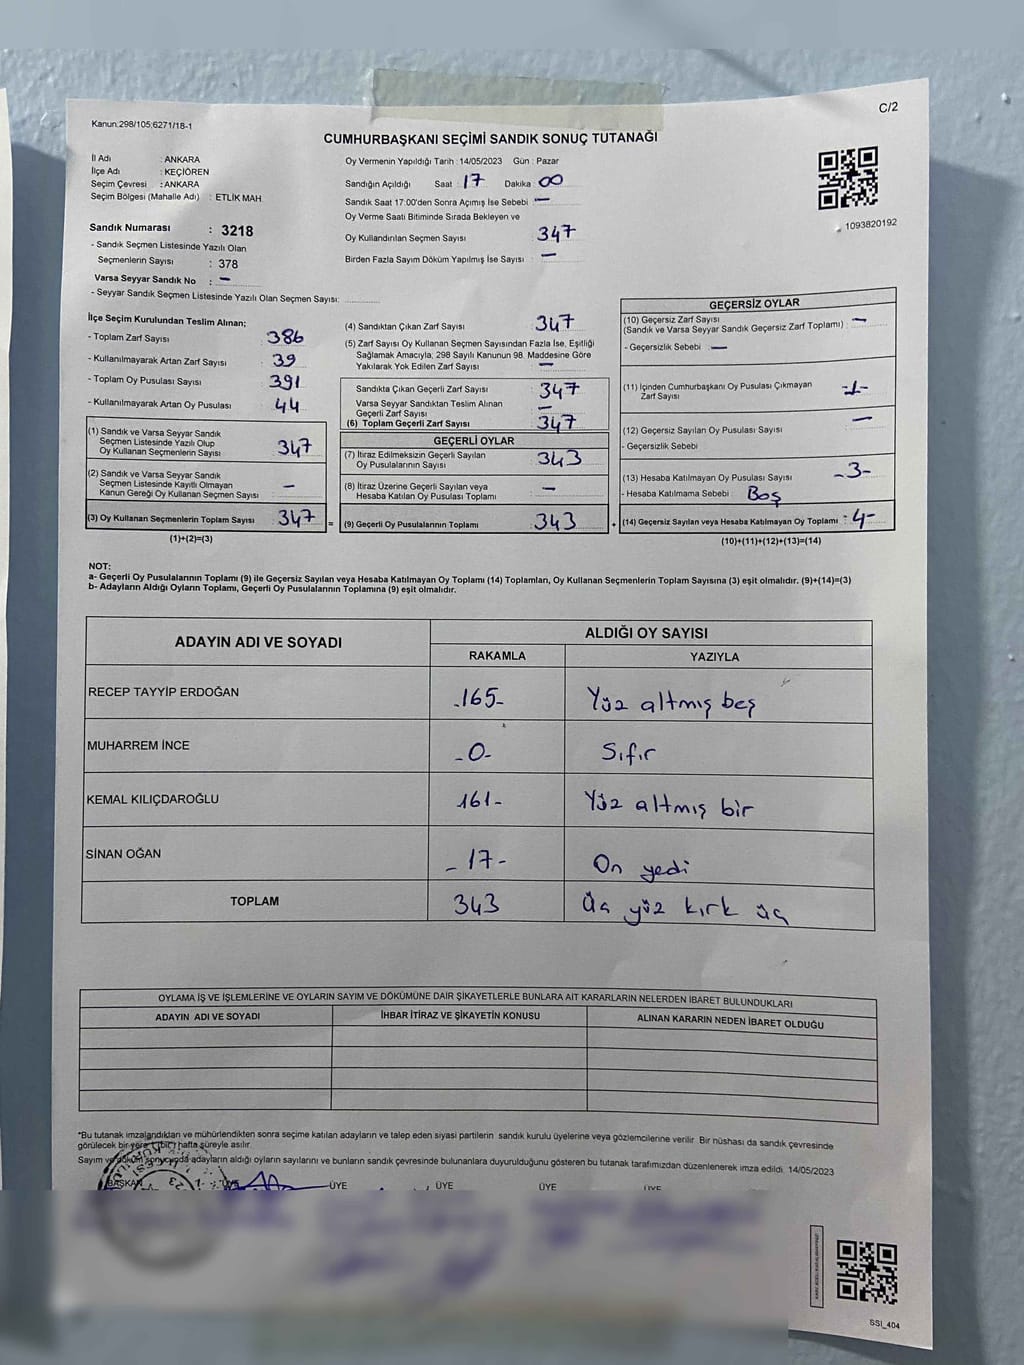 C/2
Kanun:298/105;6271/18-1
CUMHURBAŞKANI SEÇİMİ SANDIK SONUÇ TUTANAĞI
İl Adı : ANKARA
İlçe Adı : KEÇİÖREN
Seçim Çevresi : ANKARA
Seçim Bölgesi (Mahalle Adı) : ETLİK MAH
Sandık Numarası : 3218
- Sandık Seçmen Listesinde Yazılı Olan
Seçmenlerin Sayısı : 378
Varsa Seyyar Sandık No : -
- Seyyar Sandık Seçmen Listesinde Yazılı Olan Seçmen Sayısı:
Oy Vermenin Yapıldığı Tarih : 14/05/2023 Gün : Pazar
Sandığın Açıldığı Saat : 17 Dakika : 00
Sandık Saat 17:00'den Sonra Açımış İse Sebebi -
Oy Verme Saati Bitiminde Sırada Bekleyen ve
Oy Kullandırılan Seçmen Sayısı 347
Birden Fazla Sayım Döküm Yapılmış İse Sayısı : -
1093820192
İlçe Seçim Kurulundan Teslim Alınan;
- Toplam Zarf Sayısı : 386
- Kullanılmayarak Artan Zarf Sayısı : 39
- Toplam Oy Pusulası Sayısı : 391
- Kullanılmayarak Artan Oy Pusulası : 44
(1) Sandık ve Varsa Seyyar Sandık
Seçmen Listesinde Yazılı Olup
Oy Kullanan Seçmenlerin Sayısı : 347
(2) Sandık ve Varsa Seyyar Sandık
Seçmen Listesinde Kayıtlı Olmayan
Kanun Gereği Oy Kullanan Seçmen Sayısı : -
(3) Oy Kullanan Seçmenlerin Toplam Sayısı : 347 =
(1)+(2)=(3)
(4) Sandıktan Çıkan Zarf Sayısı : 347
(5) Zarf Sayısı Oy Kullanan Seçmen Sayısından Fazla İse, Eşitliği
Sağlamak Amacıyla; 298 Sayılı Kanunun 98. Maddesine Göre
Yakılarak Yok Edilen Zarf Sayısı : -
Sandıkta Çıkan Geçerli Zarf Sayısı : 347
Varsa Seyyar Sandıktan Teslim Alınan
Geçerli Zarf Sayısı : -
(6) Toplam Geçerli Zarf Sayısı : 347
GEÇERLİ OYLAR
(7) İtiraz Edilmeksizin Geçerli Sayılan
Oy Pusulalarının Sayısı : 343
(8) İtiraz Üzerine Geçerli Sayılan veya
Hesaba Katılan Oy Pusulası Toplamı : -
(9) Geçerli Oy Pusulalarının Toplamı : 343 +
GEÇERSİZ OYLAR
(10) Geçersiz Zarf Sayısı
(Sandık ve Varsa Seyyar Sandık Geçersiz Zarf Toplamı) : -
- Geçersizlik Sebebi : -
(11) İçinden Cumhurbaşkanı Oy Pusulası Çıkmayan
Zarf Sayısı : -1-
(12) Geçersiz Sayılan Oy Pusulası Sayısı : -
- Geçersizlik Sebebi
(13) Hesaba Katılmayan Oy Pusulası Sayısı : -3-
- Hesaba Katılmama Sebebi : Boş
(14) Geçersiz Sayılan veya Hesaba Katılmayan Oy Toplamı : 4-
(10)+(11)+(12)+(13)=(14)
NOT:
a- Geçerli Oy Pusulalarının Toplamı (9) ile Geçersiz Sayılan veya Hesaba Katılmayan Oy Toplamı (14) Toplamları, Oy Kullanan Seçmenlerin Toplam Sayısına (3) eşit olmalıdır. (9)+(14)=(3)
b- Adayların Aldığı Oyların Toplamı, Geçerli Oy Pusulalarının Toplamına (9) eşit olmalıdır.
ADAYIN ADI VE SOYADI ALDIĞI OY SAYISI
RAKAMLA YAZIYLA
RECEP TAYYİP ERDOĞAN -165- Yüz altmış beş
MUHARREM İNCE -0- Sıfır
KEMAL KILIÇDAROĞLU 161- Yüz altmış bir
SİNAN OĞAN -17- On yedi
TOPLAM 343 Üç yüz kırk üç
OYLAMA İŞ VE İŞLEMLERİNE VE OYLARIN SAYIM VE DÖKÜMÜNE DAİR ŞİKAYETLERLE BUNLARA AİT KARARLARIN NELERDEN İBARET BULUNDUKLARI
ADAYIN ADI VE SOYADI İHBAR İTİRAZ VE ŞİKAYETİN KONUSU ALINAN KARARIN NEDEN İBARET OLDUĞU
*Bu tutanak imzalandıktan ve mühürlendikten sonra seçime katılan adayların ve talep eden siyasi partilerin sandık kurulu üyelerine veya gözlemcilerine verilir. Bir nüshası da sandık çevresinde
görülecek bir yere 1 (bir) hafta süreyle asılır.
Sayım ve döküm sonucunda adayların aldığı oyların sayılarını ve bunların sandık çevresinde bulunanlara duyurulduğunu gösteren bu tutanak tarafımızdan düzenlenerek imza edildi. 14/05/2023
BAŞKAN ÜYE ÜYE ÜYE ÜYE
SSI_404